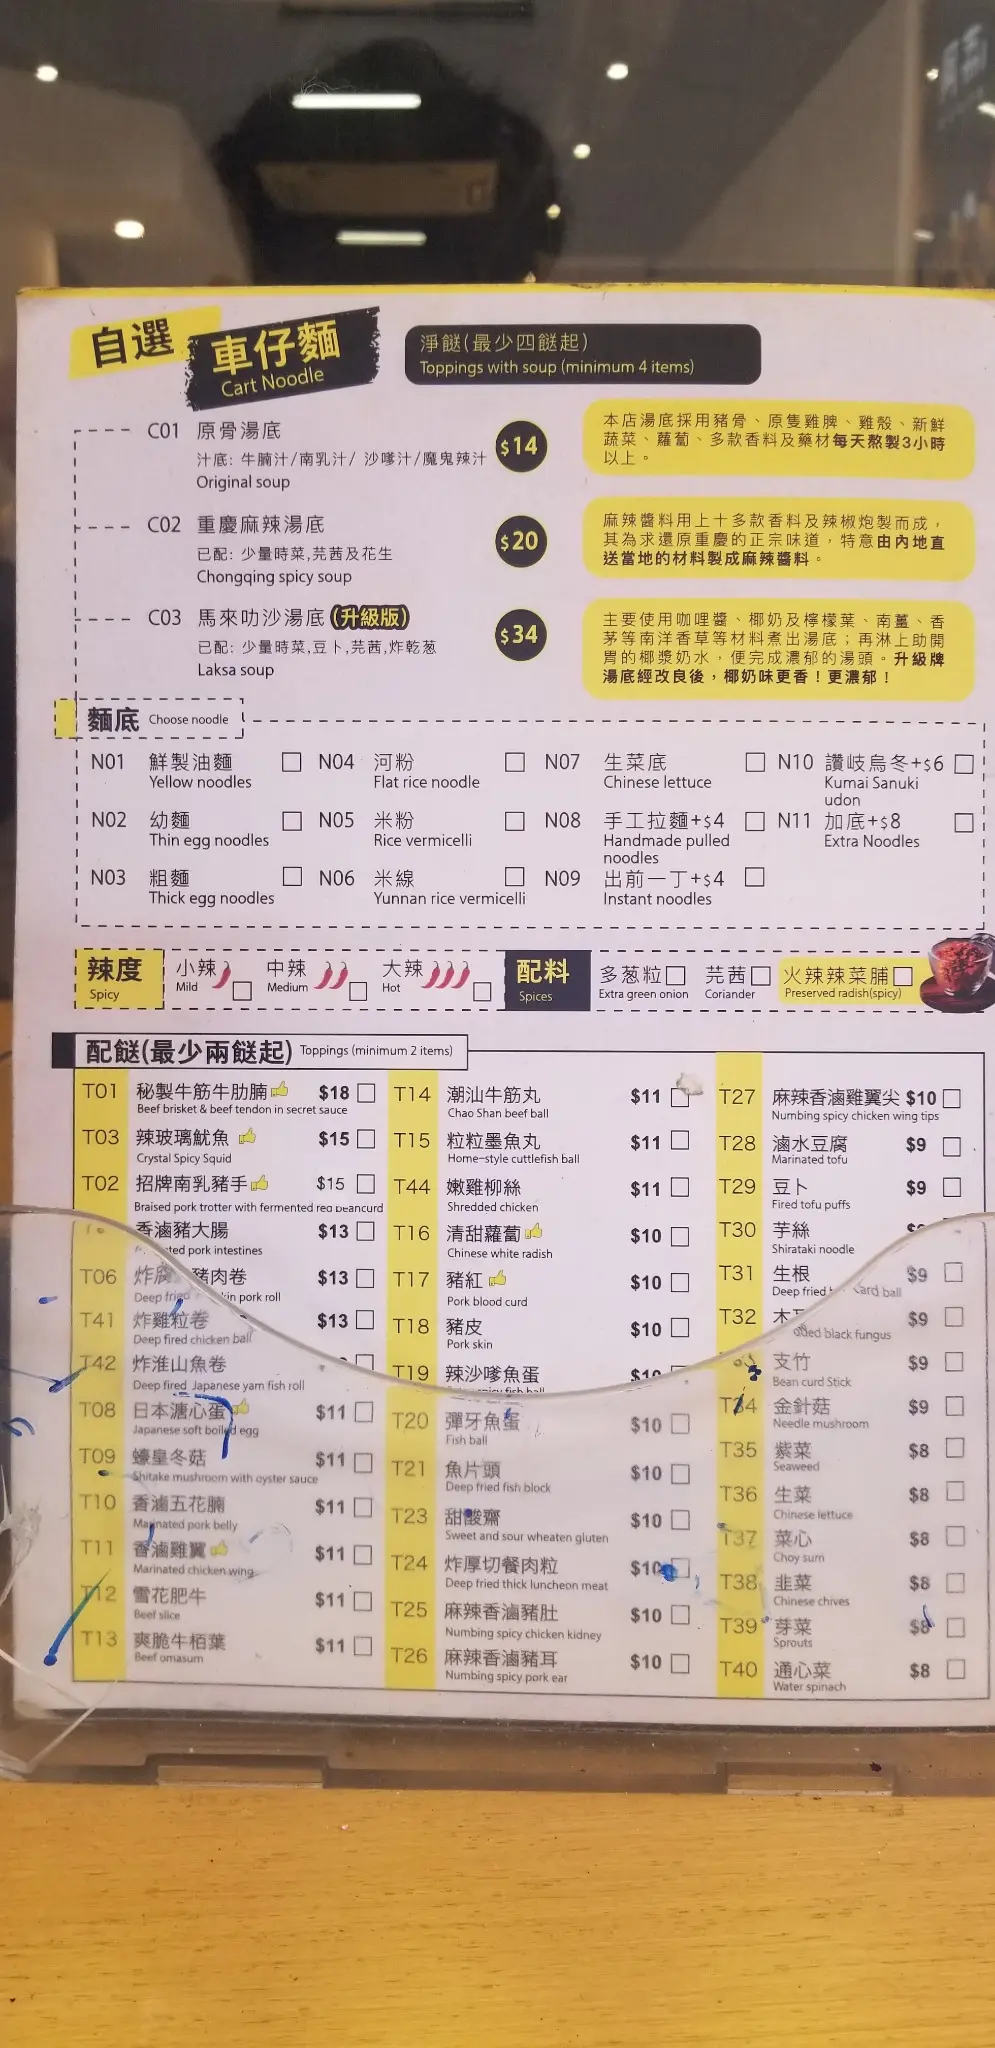 自選
車仔麵
Cart Noodle
淨餸(最少四餸起)
Toppings with soup (minimum 4 items)
C01 原骨湯底
汁底: 牛腩汁/南乳汁/ 沙嗲汁/魔鬼辣汁
Original soup
$14
本店湯底採用豬骨、原隻雞脾、雞殼、新鮮
蔬菜、蘿蔔、多款香料及藥材每天熬製3小時
以上。
C02 重慶麻辣湯底
已配: 少量時菜,芫茜及花生
Chongqing spicy soup
$20
麻辣醬料用上十多款香料及辣椒炮製而成，
其為求還原重慶的正宗味道，特意由內地直
送當地的材料製成麻辣醬料。
C03 馬來叻沙湯底(升級版)
已配: 少量時菜,豆卜,芫茜,炸乾葱
Laksa soup
$34
主要使用咖哩醬、椰奶及檸檬葉、南薑、香
茅等南洋香草等材料煮出湯底；再淋上助開
胃的椰漿奶水，便完成濃郁的湯頭。升級牌
湯底經改良後，椰奶味更香！更濃郁！
麵底 Choose noodle
N01 鮮製油麵
Yellow noodles
N02 幼麵
Thin egg noodles
N03 粗麵
Thick egg noodles
N04 河粉
Flat rice noodle
N05 米粉
Rice vermicelli
N06 米線
Yunnan rice vermicelli
N07 生菜底
Chinese lettuce
N08 手工拉麵+$4
Handmade pulled
noodles
N09 出前一丁+$4
Instant noodles
N10 讚岐烏冬+$6
Kumai Sanuki
udon
N11 加底+$8
Extra Noodles
辣度
Spicy
小辣
Mild
中辣
Medium
大辣
Hot
配料
Spices
多葱粒
Extra green onion
芫茜
Coriander
火辣辣菜脯
Preserved radish(spicy)
配餸(最少兩餸起) Toppings (minimum 2 items)
T01 秘製牛筋牛肋腩 $18
Beef brisket & beef tendon in secret sauce
T03 辣玻璃魷魚 $15
Crystal Spicy Squid
T02 招牌南乳豬手 $15
Braised pork trotter with fermented red beancurd
香滷豬大腸 $13
pork intestines
T06 炸 豬肉卷 $13
Deep pork roll
T41 炸雞粒卷 $13
Deep fired chicken ball
T42 炸淮山魚卷
Deep fired Japanese yam fish roll
T08 日本溏心蛋 $11
Japanese soft boiled egg
T09 蠔皇冬菇 $11
Shitake mushroom with oyster sauce
T10 香滷五花腩 $11
Marinated pork belly
T11 香滷雞翼 $11
Marinated chicken wing
T12 雪花肥牛 $11
Beef slice
T13 爽脆牛栢葉 $11
Beef omasum
T14 潮汕牛筋丸 $11
Chao Shan beef ball
T15 粒粒墨魚丸 $11
Home-style cuttlefish ball
T44 嫩雞柳絲 $11
Shredded chicken
T16 清甜蘿蔔 $10
Chinese white radish
T17 豬紅 $10
Pork blood curd
T18 豬皮 $10
Pork skin
T19 辣沙嗲魚蛋 $10
T20 彈牙魚蛋 $10
Fish ball
T21 魚片頭 $10
Deep fried fish block
T23 甜酸齋 $10
Sweet and sour wheaten gluten
T24 炸厚切餐肉粒 $10
Deep fried thick luncheon meat
T25 麻辣香滷豬肚 $10
Numbing spicy chicken kidney
T26 麻辣香滷豬耳 $10
Numbing spicy pork ear
T27 麻辣香滷雞翼尖 $10
Numbing spicy chicken wing tips
T28 滷水豆腐 $9
Marinated tofu
T29 豆卜 $9
Fired tofu puffs
T30 芋絲
Shirataki noodle
T31 生根 $9
Deep fried ball
T32 木 $9
black fungus
支竹 $9
Bean curd Stick
T34 金針菇 $9
Needle mushroom
T35 紫菜 $8
Seaweed
T36 生菜 $8
Chinese lettuce
T37 菜心 $8
Choy sum
T38 韭菜 $8
Chinese chives
T39 芽菜 $8
Sprouts
T40 通心菜 $8
Water spinach